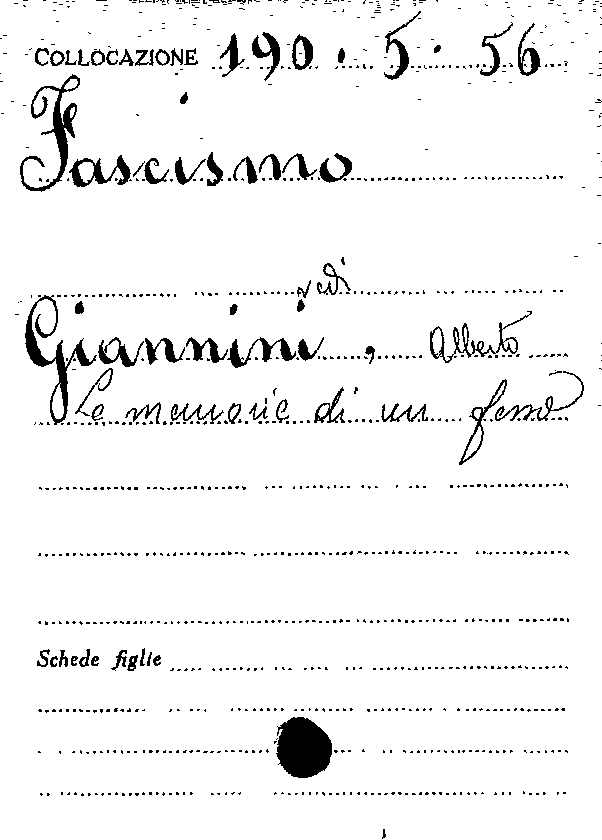 COLLOCAZIONE 190.5.56
Fascismo
vedi
Giannini, Alberto
Le memorie di un fesso
Schede figlie